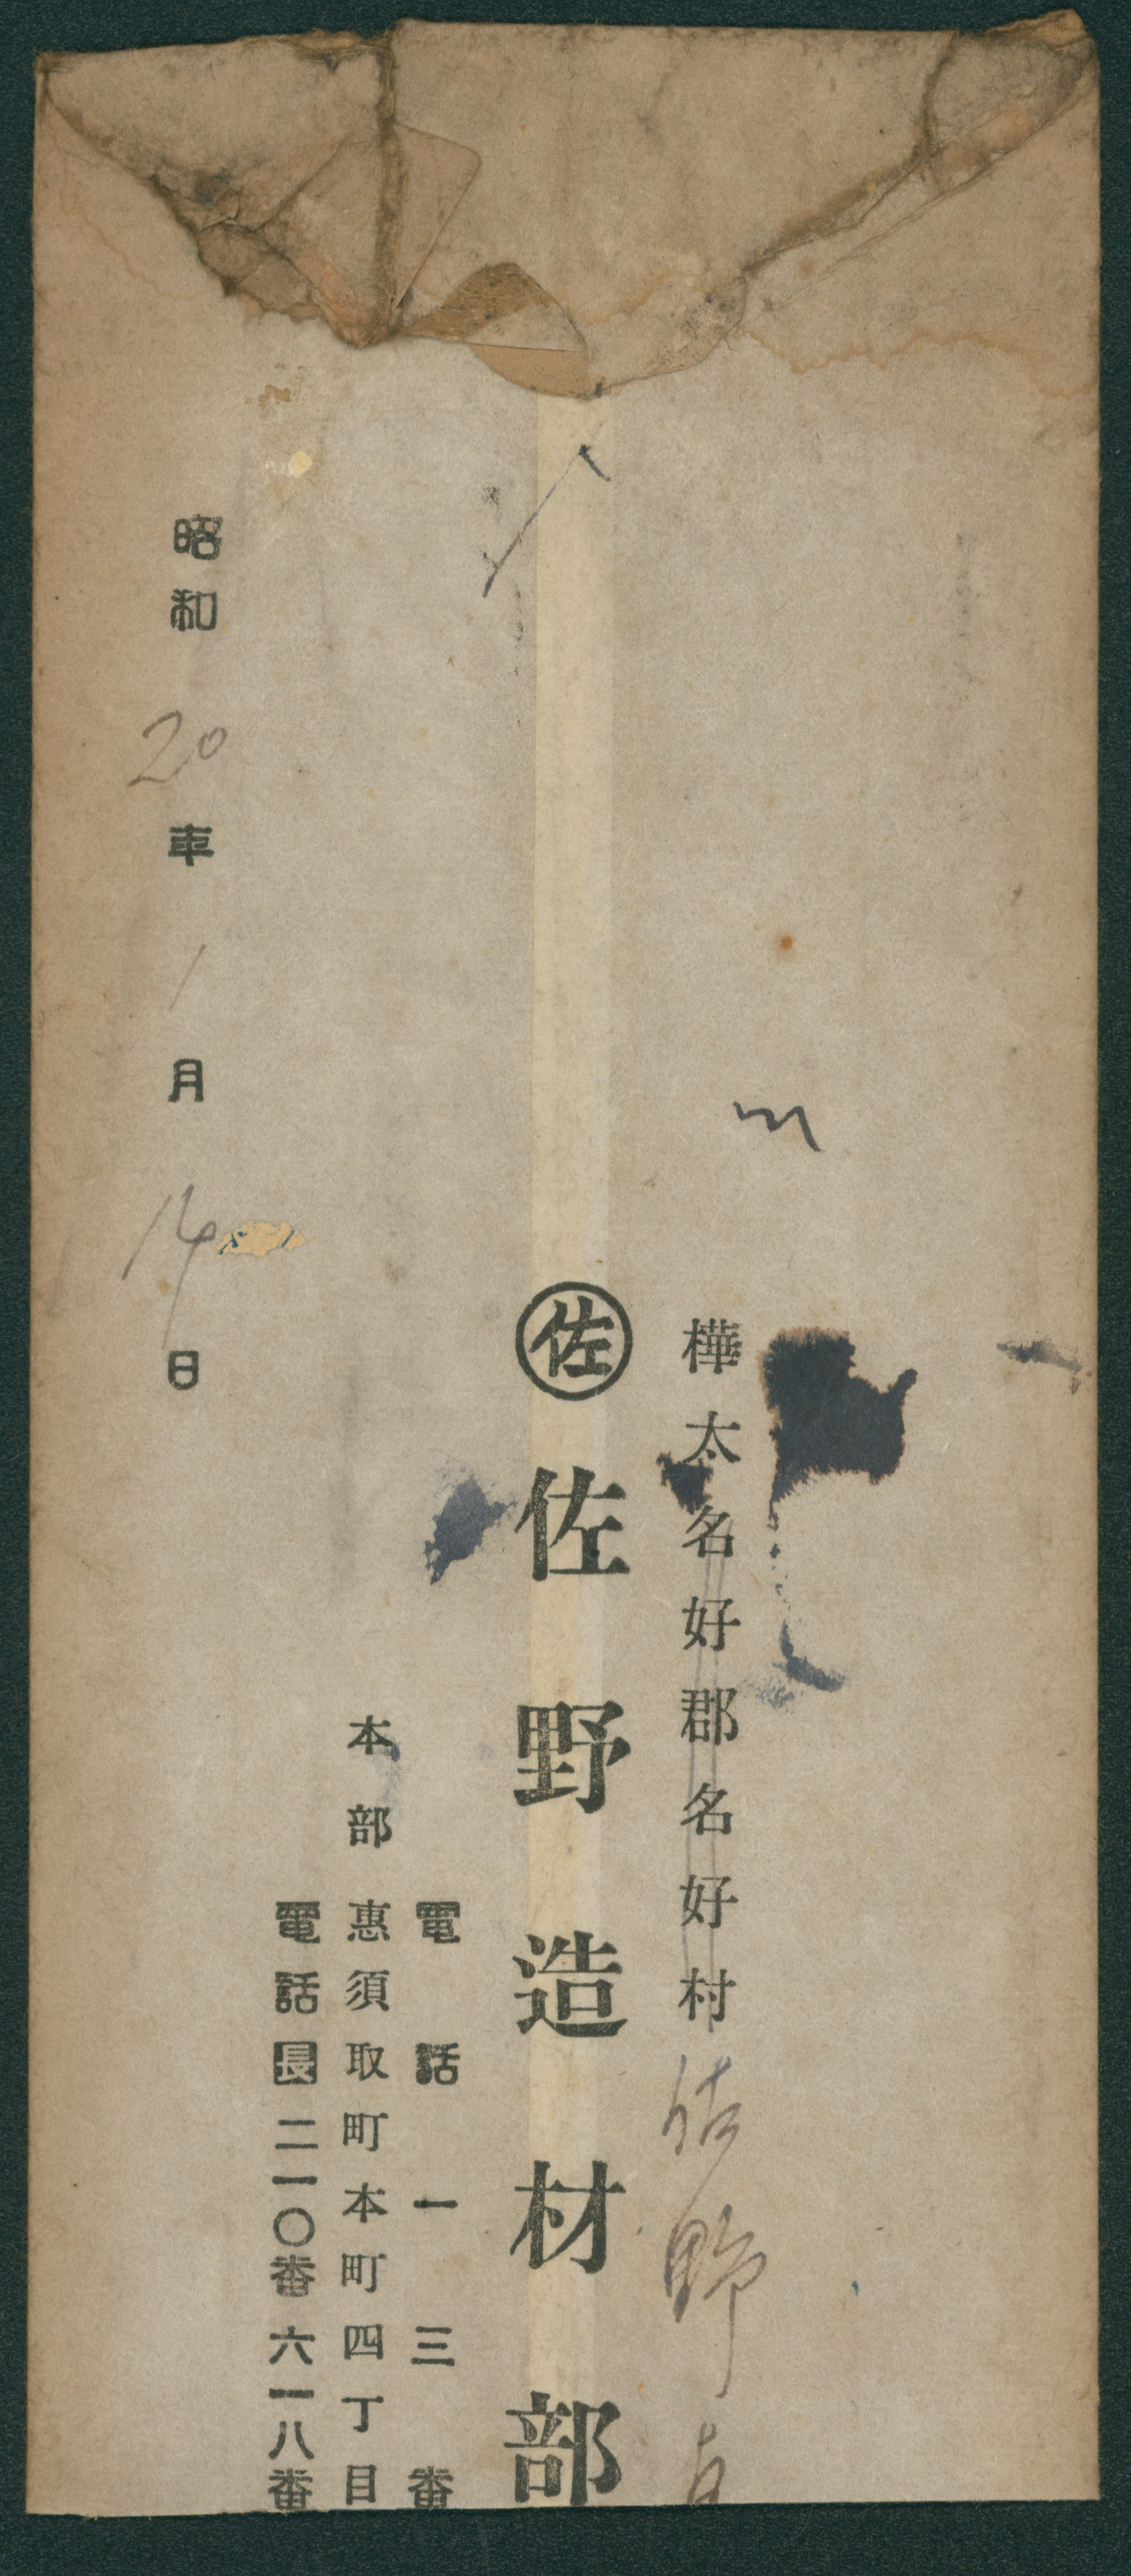 樺太名好郡名好村 佐野
佐 佐野造材部
電話一三番
本部 惠須取町本町四丁目
電話長二一〇番 六一八番
昭和20年1月14日